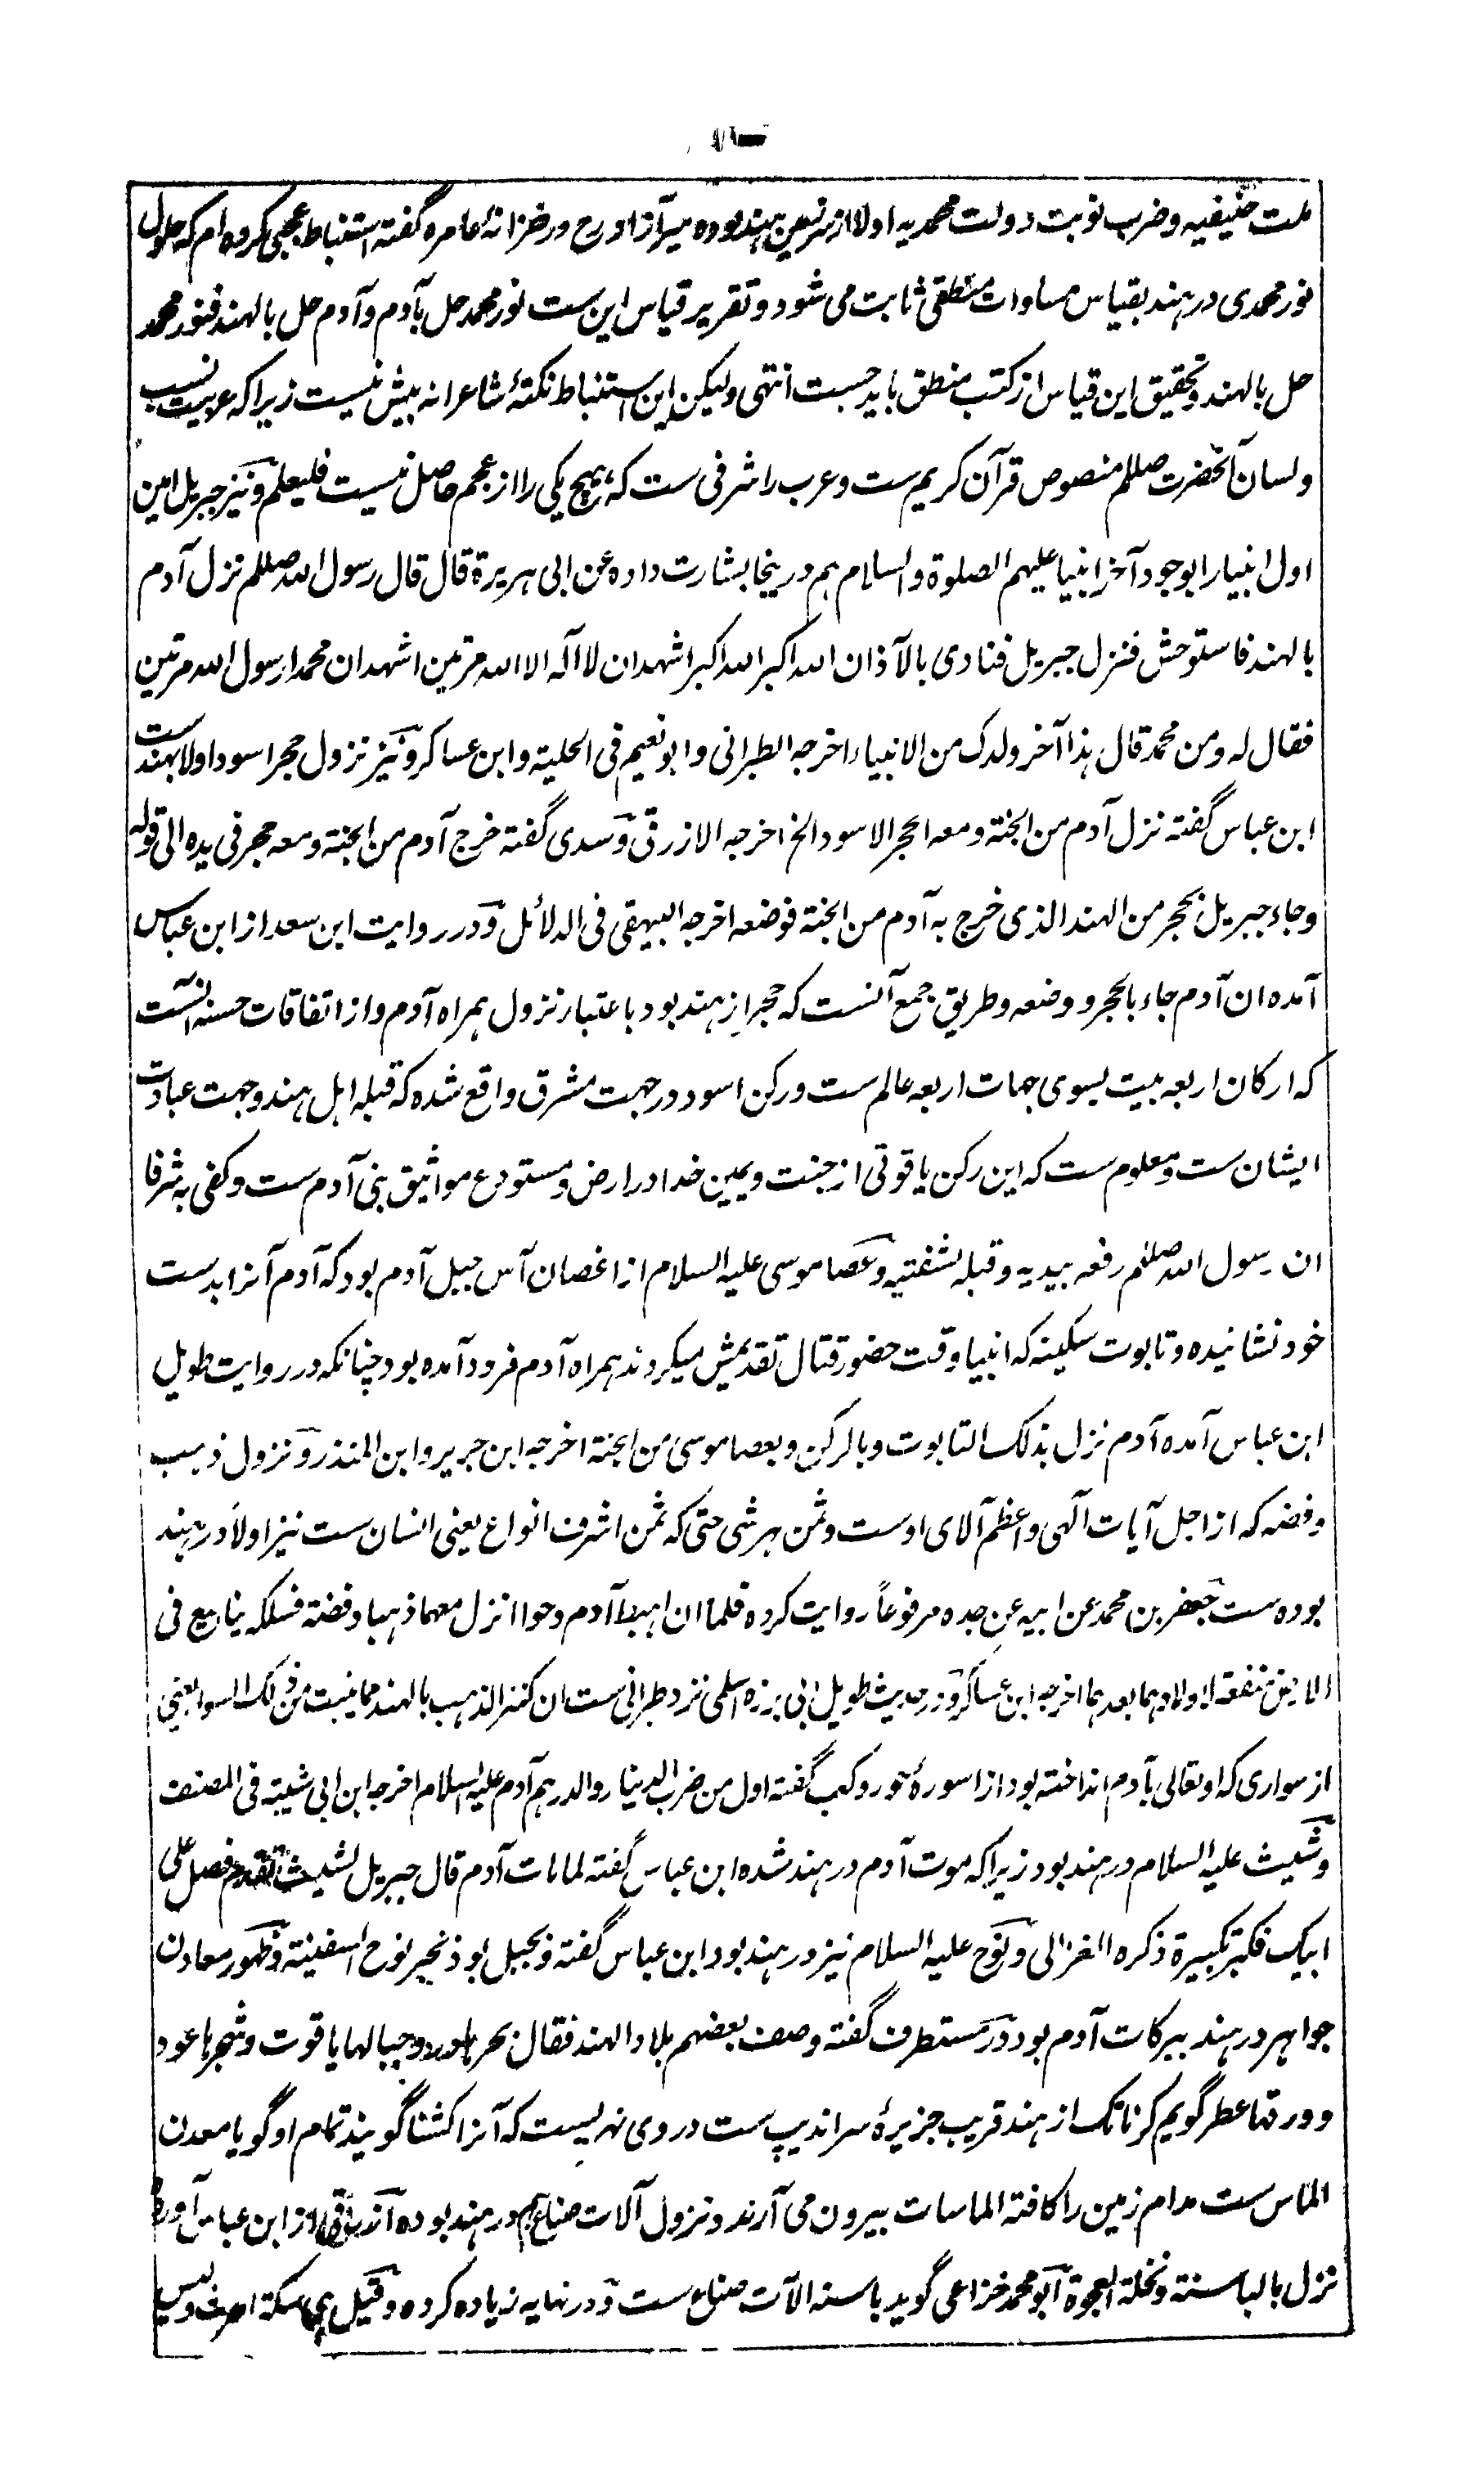 ملت حنیفیه و ضرب نوبت دولت محمدیه اولا از سرزمین هند بوده میر آزاد رح در خزانهٔ عامره گفته استنباط عجبی کرده ام که حلول
نور محمدی در هند بقیاس مساوات منطقی ثابت می شود و تقریر قیاس این ست نور محمد حل بآدم و آدم حل بالهند فنور محمد
حل بالهند و تحقیق این قیاس از کتب منطق باید جست انتهی ولیکن این استنباط نکتهٔ شاعرانه بیش نیست زیرا که عربیت نسب
و لسان آنحضرت صللم منصوص قرآن کریم ست و عرب را شرفی ست که هیچ یکی را از عجم حاصل نیست فلیعلم و نیز جبریل امین
اول انبیا را بوجود آخر انبیا علیهم الصلوة و السلام هم درینجا بشارت داده عن ابی هریرة قال قال رسول الله صللم نزل آدم
بالهند فاستوحش فنزل جبریل فنادی بالآذان الله اکبر الله اکبر اشهد ان لا آله الا الله مرتین اشهد ان محمدا رسول الله مرتین
فقال له ومن محمد قال هذا آخر ولدک من الانبیاء اخرجه الطبرانی و ابو نعیم فی الحلیة و ابن عساکر و نیز نزول حجر اسود اولا بهند ست
ابن عباس گفته نزل آدم من الجنة ومعه الحجر الاسود الخ اخرجه الازرقی و سدی گفته خرج آدم من الجنة ومعه حجر فی یده الی قوله
وجاء جبریل بحجر من الهند الذی خرج به آدم من الجنة فوضعه اخرجه البیهقی فی الدلائل و در روایت ابن سعد از ابن عباس
آمده ان آدم جاء بالحجر و وضعه و طریق جمع آنست که حجر از هند بود باعتبار نزول همراه آدم و از اتفاقات حسنه آنست
که ارکان اربعه بیت بسوی جهات اربعه عالم ست و رکن اسود در جهت مشرق واقع شده که قبله اهل هند و جهت عبادت
ایشان ست و معلوم ست که این رکن یاقوتی از جنت و یمین خدا در ارض و مستودع مواثیق بنی آدم ست و کفی به شرفا
ان رسول الله صللم رفعه بیدیه و قبله بشفتیه و عصا موسی علیه السلام از اغصان آس جبل آدم بود که آدم آنرا بدست
خود نشانیده و تابوت سکینه که انبیا وقت حضور قتال تقدیمش میکردند همراه آدم فرود آمده بود چنانکه در روایت طویل
ابن عباس آمده آدم نزل بذلک التابوت و بالرکن و بعصا موسی من الجنة اخرجه ابن جریر و ابن المنذر و نزول ذهب
و فضه که از اجل آیات آلهی و اعظم آلای اوست و ثمن هر شی حتی که ثمن اشرف انواع یعنی انسان ست نیز اولا در هند
بوده ست جعفر بن محمد عن ابیه عن جده مرفوعاً روایت کرده فلما ان اهبط آدم و حوا انزل معهما ذهبا و فضة فسلکه ینابیع فی
الارض منفعة لاولادهما بعدهما اخرجه ابن عساکر و در حدیث طویل ابی برزه اسلمی نزد طبرانی ست ان کنز الذهب بالهند مما ینبت من ذلک السوار یعنی
از سواری که او تعالی بآدم انداخته بود از اسورهٔ حور و کعب گفته اول من ضرب الدینار والدرهم آدم علیه السلام اخرجه ابن ابی شیبة فی المصنف
و شیث علیه السلام در هند بود زیرا که موت آدم در هند شده ابن عباس گفته لما مات آدم قال جبریل لشیث تقدم فصل علی
ابیک فکبر تکبیرة ذکره الغزالی و نوح علیه السلام نیز در هند بود ابن عباس گفته و بجبل بوذ نجر نوح السفینة و ظهور معادن
جواهر در هند ببرکات آدم بود در مستطرف گفته وصف بعضهم بلاد الهند فقال بحرها در و جبالها یاقوت و شجرها عود
و ورقها عطر گویم کرناتک از هند قریب جزیرهٔ سراندیپ ست در وی نهریست که آنرا کشنا گویند تمام او گویا معدن
الماس ست مدام زمین را کافته الماسات بیرون می آرند و نزول آلات صناع هم در هند بوده ازرقی از ابن عباس آورده
نزل بالباسنة و نخلة العجوة ابو محمد خزاعی گوید باسنه آلات صناع ست و در نهایه زیاده کرده و قیل هی سکة الحرث و لیس